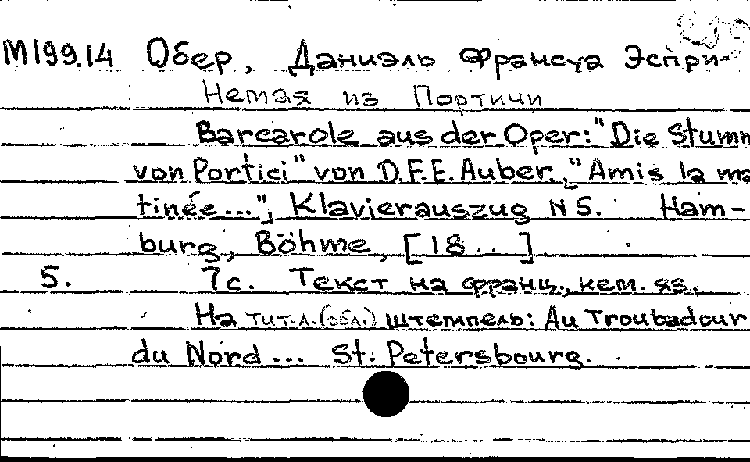 М199.14 Обер, Даниэль Франсуа Эспри-
Немая из Портичи
Barcarole aus der Oper: "Die Stumm
von Portici" von D.F.E. Auber, "Amis la ma
tinée...", Klavierauszug N 5. Ham-
burg, Böhme, [18..]
5. 7с. Текст на франц., нем. яз.
На тит.л.(обл.) штемпель: Au Troubadour
du Nord... St. Petersbourg.